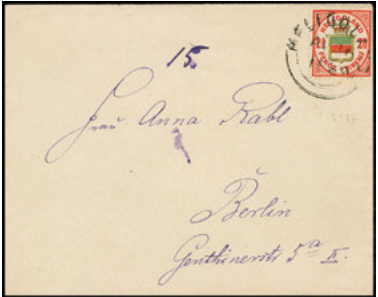 HELIGOL
15.
Frau Anna Rabl
Berlin
Genthinerstr 5ª II.